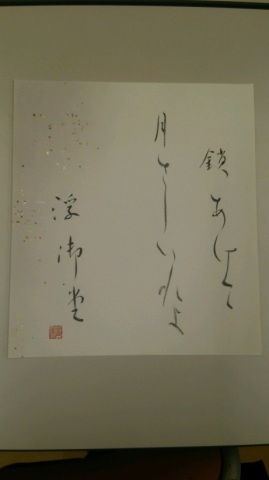 鎖あけて
月さしいれよ
浮御堂